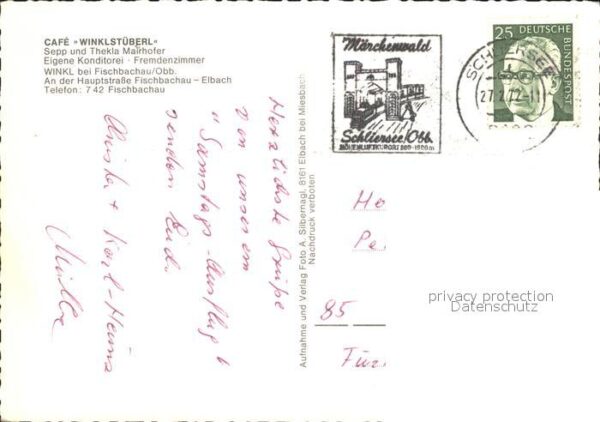 CAFÉ »WINKLSTÜBERL«
Sepp und Thekla Mairhofer
Eigene Konditorei · Fremdenzimmer
WINKL bei Fischbachau/Obb.
An der Hauptstraße Fischbachau – Elbach
Telefon: 7 42 Fischbachau
Herzlichste Grüße
von unserem
"Samstags-Ausflug"
senden Euch
Christa + Karl-Heinz
Müller
Aufnahme und Verlag Foto A. Silbernagl, 8161 Elbach bei Miesbach
Nachdruck verboten
Märchenwald
Schliersee/Obb.
HÖHENLUFTKURORT 800-1800m
SCHLIERSEE
27.2.72-11
25
DEUTSCHE
BUNDESPOST
He
Pe
85
Für
privacy protection
Datenschutz